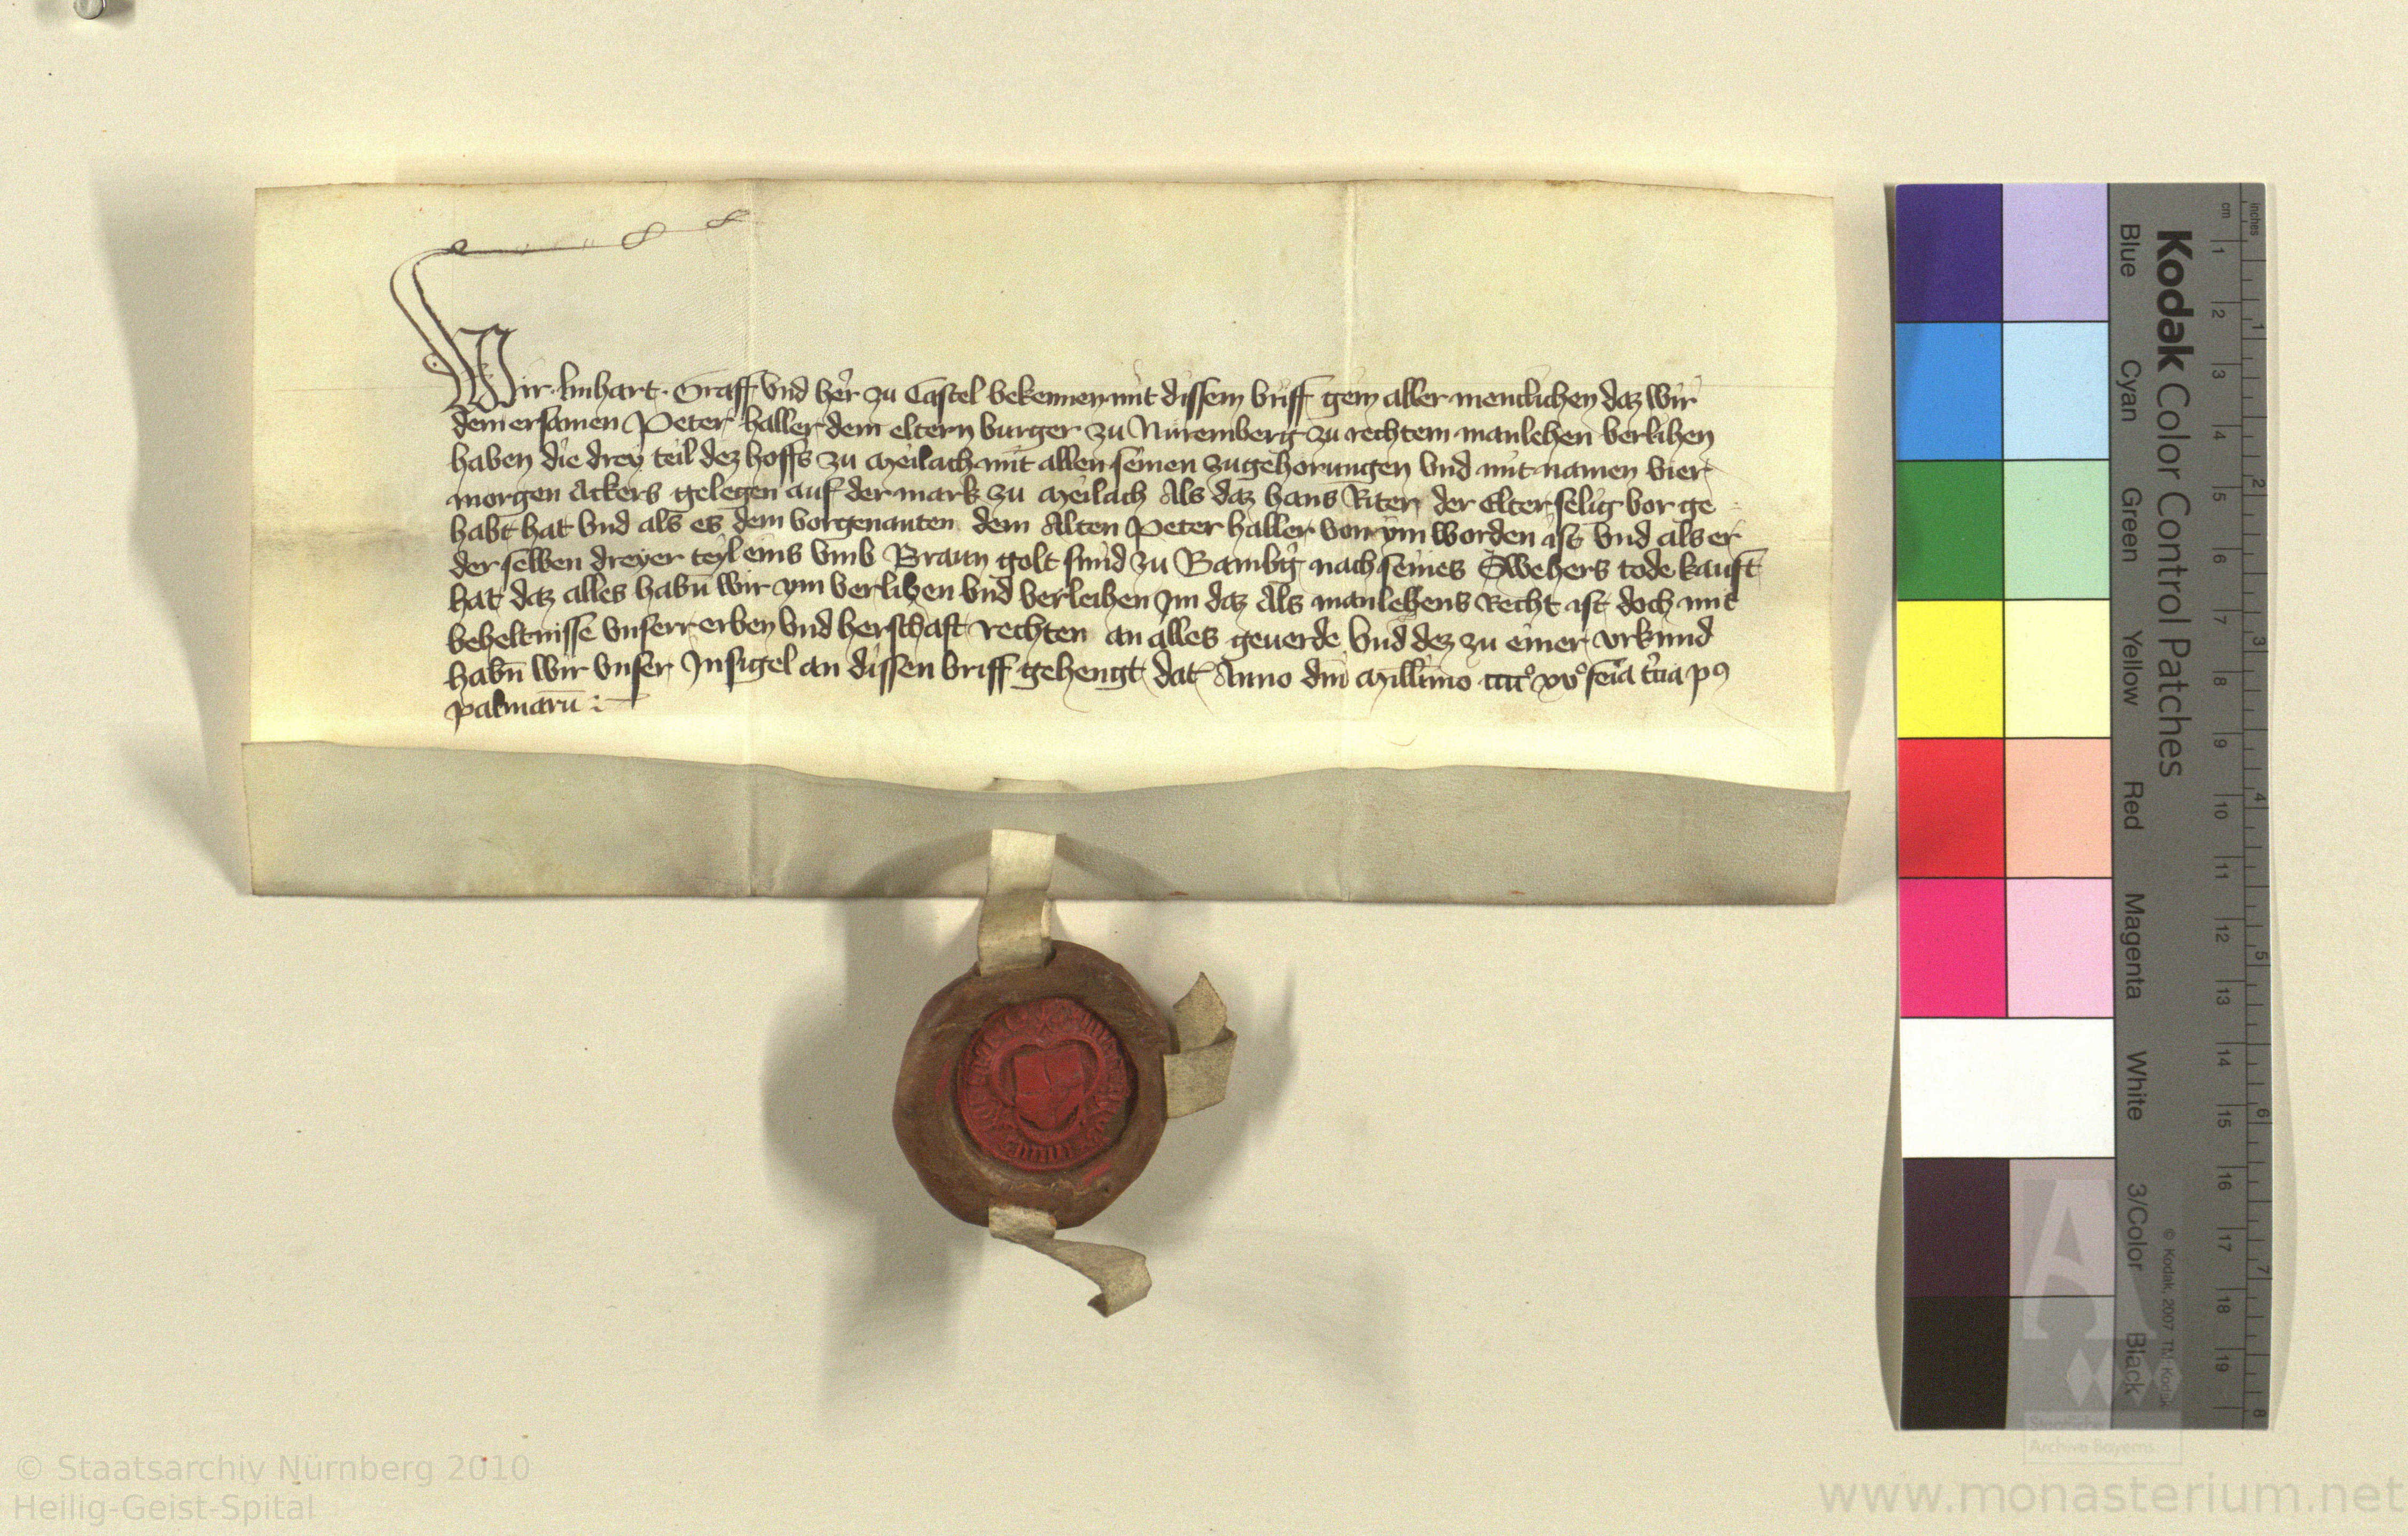 Wir · linhart · Graff vnd her zu Castel bekennen mit dissem briff gein aller meniclichen daz wir
dem ersamen Peter haller dem eltern burger zu Nuremberg zu rechtem manlehen verlihen
haben die drey teil dez hoffs zu Meilach mit allen seinen zugehorungen vnd mit namen vier
morgen Ackers gelegen auf der mark zu Meilach Als daz hans Riter der Elter selig vor ge
habt hat vnd als es dem vorgenanten dem Alten Peter haller von ym worden ist vnd als er
der selben dreyer teyl eins vmb Braun golt smid zu Bambg nach seines Swehers tode kauft
hat daz alles habn̄ wir ym verlihen vnd verleihen Im daz Als manlehens Recht ist doch mit
beheltnisse vnserr erben vnd herschaft rechten an alles geuerde vnd dez zu einer vrkund
habn̄ wir vnser Insigel an dissen briff gehengt dat Anno dni Millimo cccc° xv° feia tcia p9
palmarū
Kodak Color Control Patches
Blue Cyan Green Yellow Red Magenta White 3/Color Black
© Kodak, 2007 TM: Kodak
cm 1 2 3 4 5 6 7 8 9 10 11 12 13 14 15 16 17 18 19
inches 1 2 3 4 5 6 7 8
Staatliche
Archive Bayerns
© Staatsarchiv Nürnberg 2010
Heilig-Geist-Spital
www.monasterium.net